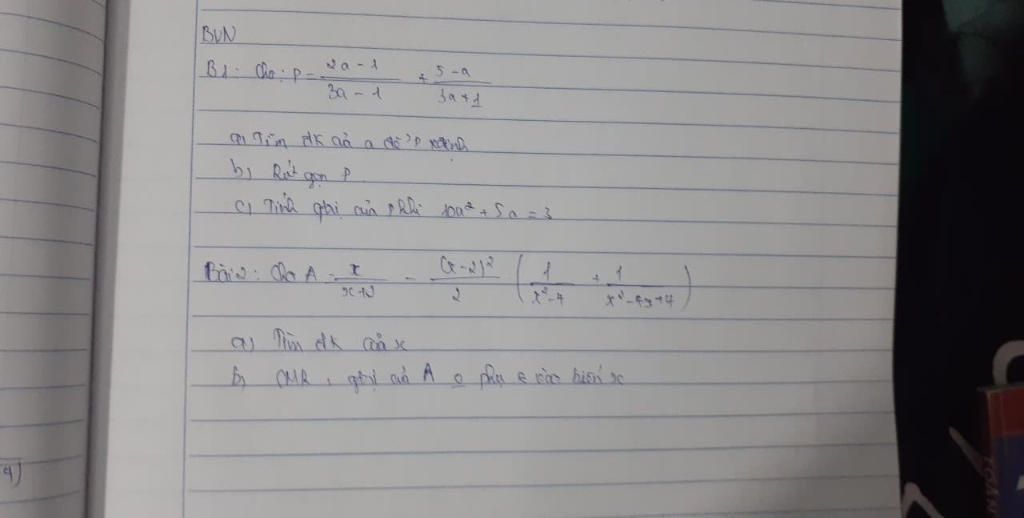 BVN
B1: Cho: P = \frac{2a-1}{3a-1} + \frac{5-a}{3a+1}
a) Tìm đk của a để P xđịnh
b) Rút gọn P
c) Tính gtrị của P khi 10a² + 5a = 3
Bài 2: Cho A = \frac{x}{x+2} - \frac{(x-2)^2}{2} \left( \frac{1}{x^2-4} + \frac{1}{x^2-4x+4} \right)
a) Tìm đk của x
b) CMR, gtrị của A o phụ € vào biến x
4)
TOÁN